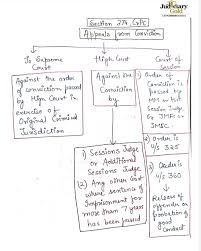 Judiciary
Gold
Section 374, CrPC
Appeals from Conviction
To Supreme
Court
High Court
Court of
Session
Against the order
of conviction passed
by High Court in
exercise of
Original Criminal
Jurisdiction
Against the
Conviction
by
1) Order of
Conviction is
Passed by
MM or Asst
Session Judge
by JMFC or
JMSC.
2) Order is
u/s 325
3) Order is
u/s 360
Release of
offender on
Probation of good
Conduct
1) Sessions Judge
or Additional
Sessions Judge
2) Any other Court
where sentence of
Imprisonment for
more than 7 years
has been passed